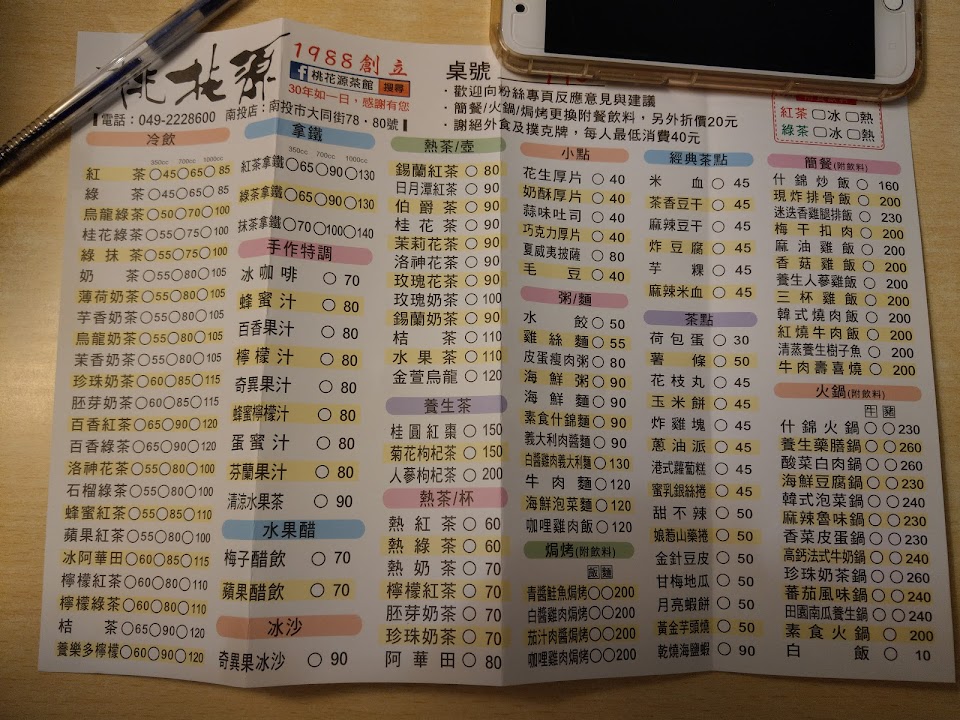 桃花源
1988創立
f 桃花源茶館 搜尋
30年如一日，感謝有您
電話：049-2228600 南投店：南投市大同街78、80號
桌號
·歡迎向粉絲專頁反應意見與建議
·簡餐/火鍋/焗烤更換附餐飲料，另外折價20元
·謝絕外食及撲克牌，每人最低消費40元
紅茶□冰□熱
綠茶□冰□熱
冷飲
350cc 700cc 1000cc
紅茶○45○65○85
綠茶○45○65○85
烏龍綠茶○50○70○100
桂花綠茶○55○75○100
綠抹茶○55○75○100
奶茶○55○80○105
薄荷奶茶○55○80○105
芋香奶茶○55○80○105
烏龍奶茶○55○80○105
茉香奶茶○55○80○105
珍珠奶茶○60○85○115
胚芽奶茶○60○85○115
百香紅茶○65○90○120
百香綠茶○65○90○120
洛神花茶○55○80○100
石榴綠茶○55○80○100
蜂蜜紅茶○55○85○110
蘋果紅茶○55○80○100
冰阿華田○60○85○115
檸檬紅茶○60○80○110
檸檬綠茶○60○80○110
桔茶○65○90○120
養樂多檸檬○60○90○120
拿鐵
350cc 700cc 1000cc
紅茶拿鐵○65○90○130
綠茶拿鐵○65○90○130
抹茶拿鐵○70○100○140
手作特調
冰咖啡○70
蜂蜜汁○80
百香果汁○80
檸檬汁○80
奇異果汁○80
蜂蜜檸檬汁○80
蛋蜜汁○80
芬蘭果汁○80
清涼水果茶○90
水果醋
梅子醋飲○70
蘋果醋飲○70
冰沙
奇異果冰沙○90
熱茶/壺
錫蘭紅茶○80
日月潭紅茶○90
伯爵茶○90
桂花茶○90
茉莉花茶○90
洛神花茶○90
玫瑰花茶○90
玫瑰奶茶○100
錫蘭奶茶○90
桔茶○110
水果茶○110
金萱烏龍○120
養生茶
桂圓紅棗○150
菊花枸杞茶○150
人參枸杞茶○200
熱茶/杯
熱紅茶○60
熱綠茶○60
熱奶茶○70
檸檬紅茶○70
胚芽奶茶○70
珍珠奶茶○70
阿華田○80
小點
花生厚片○40
奶酥厚片○40
蒜味吐司○40
巧克力厚片○40
夏威夷披薩○80
毛豆○40
粥/麵
水餃○50
雞絲麵○55
皮蛋瘦肉粥○80
海鮮粥○90
海鮮麵○90
素食什錦麵○90
義大利肉醬麵○90
白醬雞肉義大利麵○130
牛肉麵○120
海鮮泡菜麵○120
咖哩雞肉飯○120
焗烤(附飲料)
飯 麵
青醬鮭魚焗烤○○200
白醬雞肉焗烤○○200
茄汁肉醬焗烤○○200
咖哩雞肉焗烤○○200
經典茶點
米血○45
茶香豆干○45
麻辣豆干○45
炸豆腐○45
芋粿○45
麻辣米血○45
茶點
荷包蛋○30
薯條○50
花枝丸○45
玉米餅○45
炸雞塊○45
蔥油派○45
港式蘿蔔糕○45
蜜乳銀絲捲○45
甜不辣○50
娘惹山藥捲○50
金針豆皮○50
甘梅地瓜○50
月亮蝦餅○50
黃金芋頭燒○50
乾燒海鹽蝦○90
簡餐(附飲料)
什錦炒飯○160
現炸排骨飯○200
迷迭香雞腿排飯○230
梅干扣肉○200
麻油雞飯○200
香菇雞飯○200
養生人蔘雞飯○200
三杯雞飯○200
韓式燒肉飯○200
紅燒牛肉飯○200
清蒸養生樹子魚○200
牛肉壽喜燒○200
火鍋(附飲料)
牛 豬
什錦火鍋○○230
養生藥膳鍋○○260
酸菜白肉鍋○○260
海鮮豆腐鍋○○230
韓式泡菜鍋○○240
麻辣魯味鍋○○230
香菜皮蛋鍋○○230
高鈣法式牛奶鍋○○240
珍珠奶茶鍋○○260
番茄風味鍋○○240
田園南瓜養生鍋○○240
素食火鍋○200
白飯○10